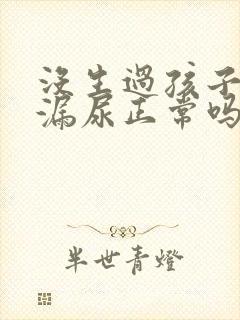 没生過孩子
漏尿正常吗
半世青燈